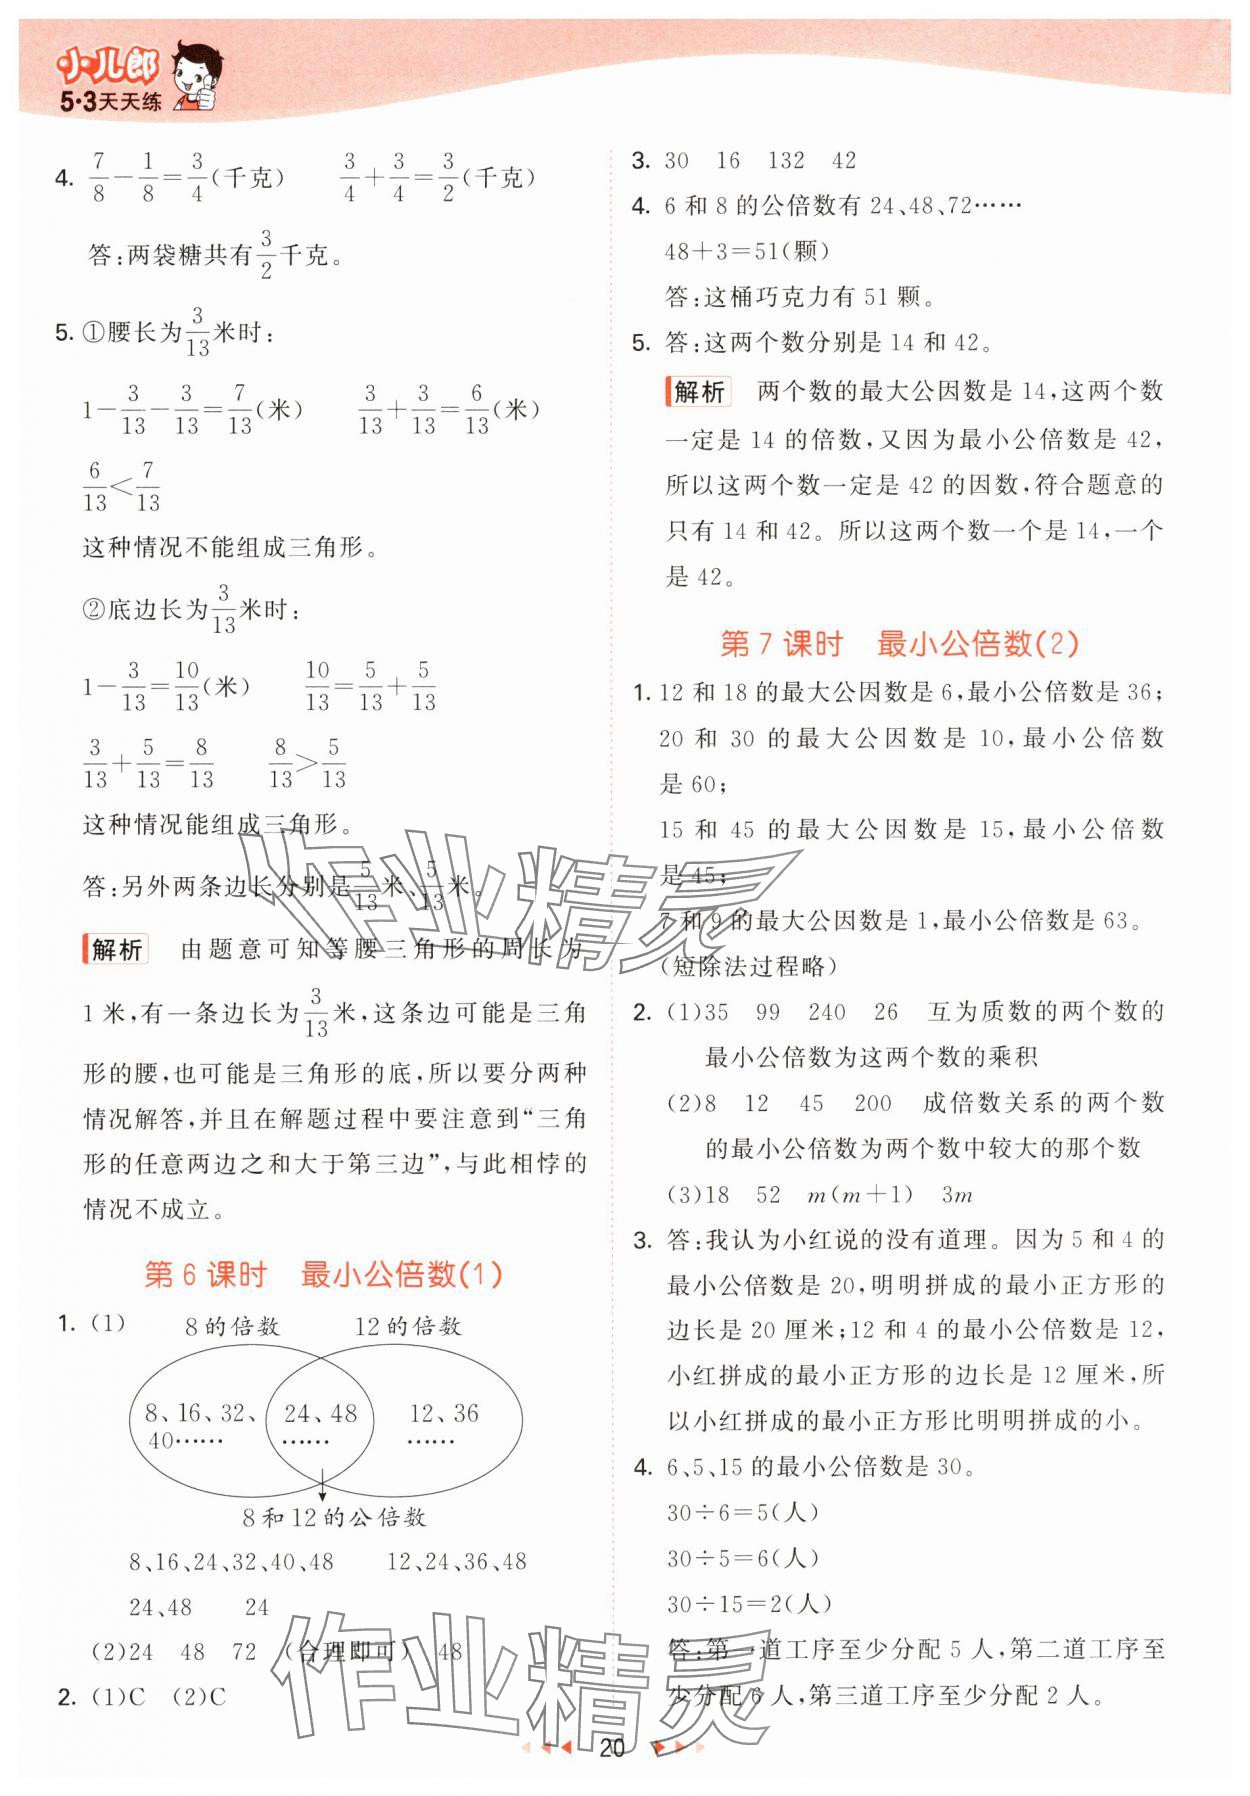 小儿郎
5·3天天练
4. 7/8－1/8＝3/4(千克)　3/4＋3/4＝3/2(千克)
答:两袋糖共有3/2千克。
5. ①腰长为3/13米时:
1－3/13－3/13＝7/13(米)　3/13＋3/13＝6/13(米)
6/13＜7/13
这种情况不能组成三角形。
②底边长为3/13米时:
1－3/13＝10/13(米)　10/13＝5/13＋5/13
3/13＋5/13＝8/13　8/13＞5/13
这种情况能组成三角形。
答:另外两条边长分别是5/13米、5/13米。
解析　由题意可知等腰三角形的周长为
1米,有一条边长为3/13米,这条边可能是三角
形的腰,也可能是三角形的底,所以要分两种
情况解答,并且在解题过程中要注意到“三角
形的任意两边之和大于第三边”,与此相悖的
情况不成立。
第6课时　最小公倍数(1)
1. (1)
8的倍数　12的倍数
8、16、32、　24、48　12、36
40……　……　……
8和12的公倍数
8、16、24、32、40、48　12、24、36、48
24、48　24
(2)24　48　72　(合理即可)　48
2. (1)C　(2)C
3. 30　16　132　42
4. 6和8的公倍数有24、48、72……
48＋3＝51(颗)
答:这桶巧克力有51颗。
5. 答:这两个数分别是14和42。
解析　两个数的最大公因数是14,这两个数
一定是14的倍数,又因为最小公倍数是42,
所以这两个数一定是42的因数,符合题意的
只有14和42。所以这两个数一个是14,一个
是42。
第7课时　最小公倍数(2)
1. 12和18的最大公因数是6,最小公倍数是36;
20和30的最大公因数是10,最小公倍数
是60;
15和45的最大公因数是15,最小公倍数
是45;
7和9的最大公因数是1,最小公倍数是63。
(短除法过程略)
2. (1)35　99　240　26　互为质数的两个数的
最小公倍数为这两个数的乘积
(2)8　12　45　200　成倍数关系的两个数
的最小公倍数为两个数中较大的那个数
(3)18　52　m(m＋1)　3m
3. 答:我认为小红说的没有道理。因为5和4的
最小公倍数是20,明明拼成的最小正方形的
边长是20厘米;12和4的最小公倍数是12,
小红拼成的最小正方形的边长是12厘米,所
以小红拼成的最小正方形比明明拼成的小。
4. 6、5、15的最小公倍数是30。
30÷6＝5(人)
30÷5＝6(人)
30÷15＝2(人)
答:第一道工序至少分配5人,第二道工序至
少分配6人,第三道工序至少分配2人。
作业精灵
作业精灵
20